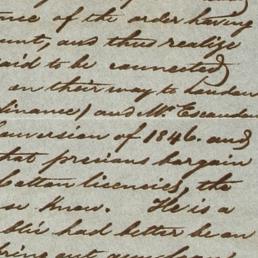 nce of the order having
unt, and thus realize
said to be connected)
on their way to London
finance) and Mr. Escandon
Conversion of 1846. and
that precious bargain
Cotton licencies, the
su know. He is a
blic had better be on